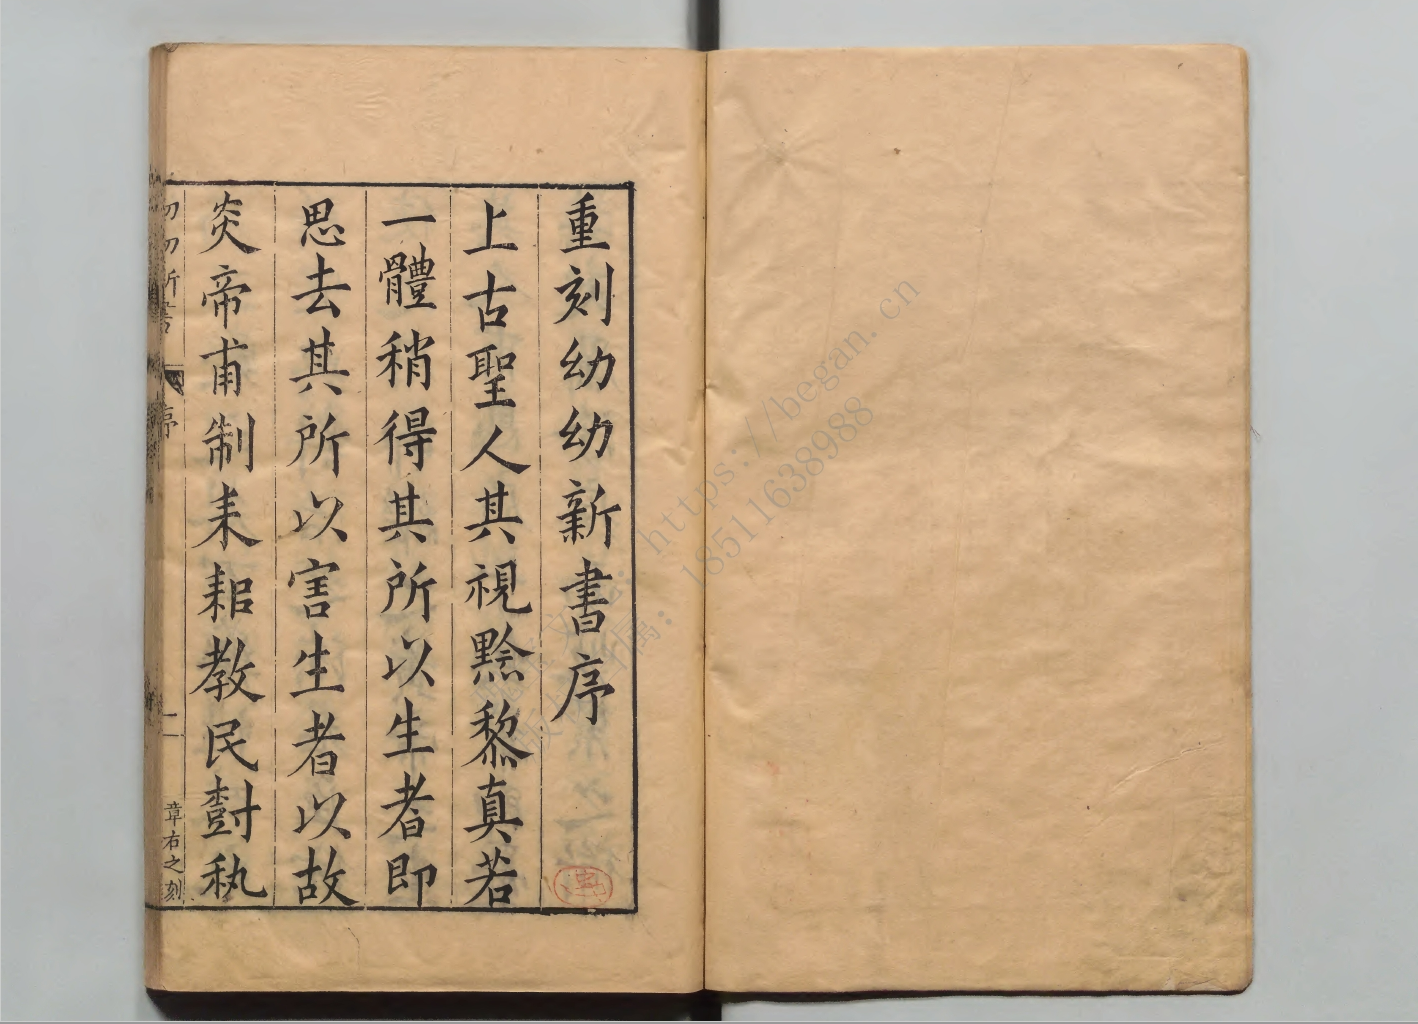 重刻幼幼新書序
上古聖人其視黔黎真若
一體稍得其所以生者即
思去其所以害生者以故
炎帝甫制耒耜教民𡬾秇
幼幼新書
序
一
章右之刻
https://began.cn
18511638988